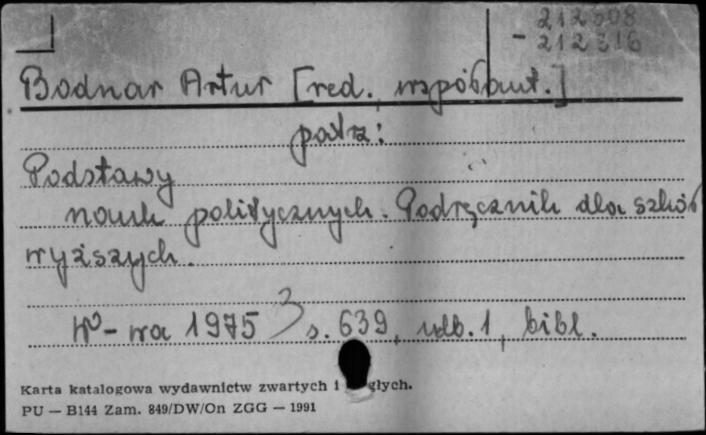 212308
- 212316
Bodnar Artur [red., współaut.]
patrz:
Podstawy
nauk politycznych. Podręcznik dla szkół
wyższych.
W-wa 1975 s. 639, nlb. 1, bibl.
Karta katalogowa wydawnictw zwartych i
PU — B144 Zam. 849/DW/On ZGG — 1991